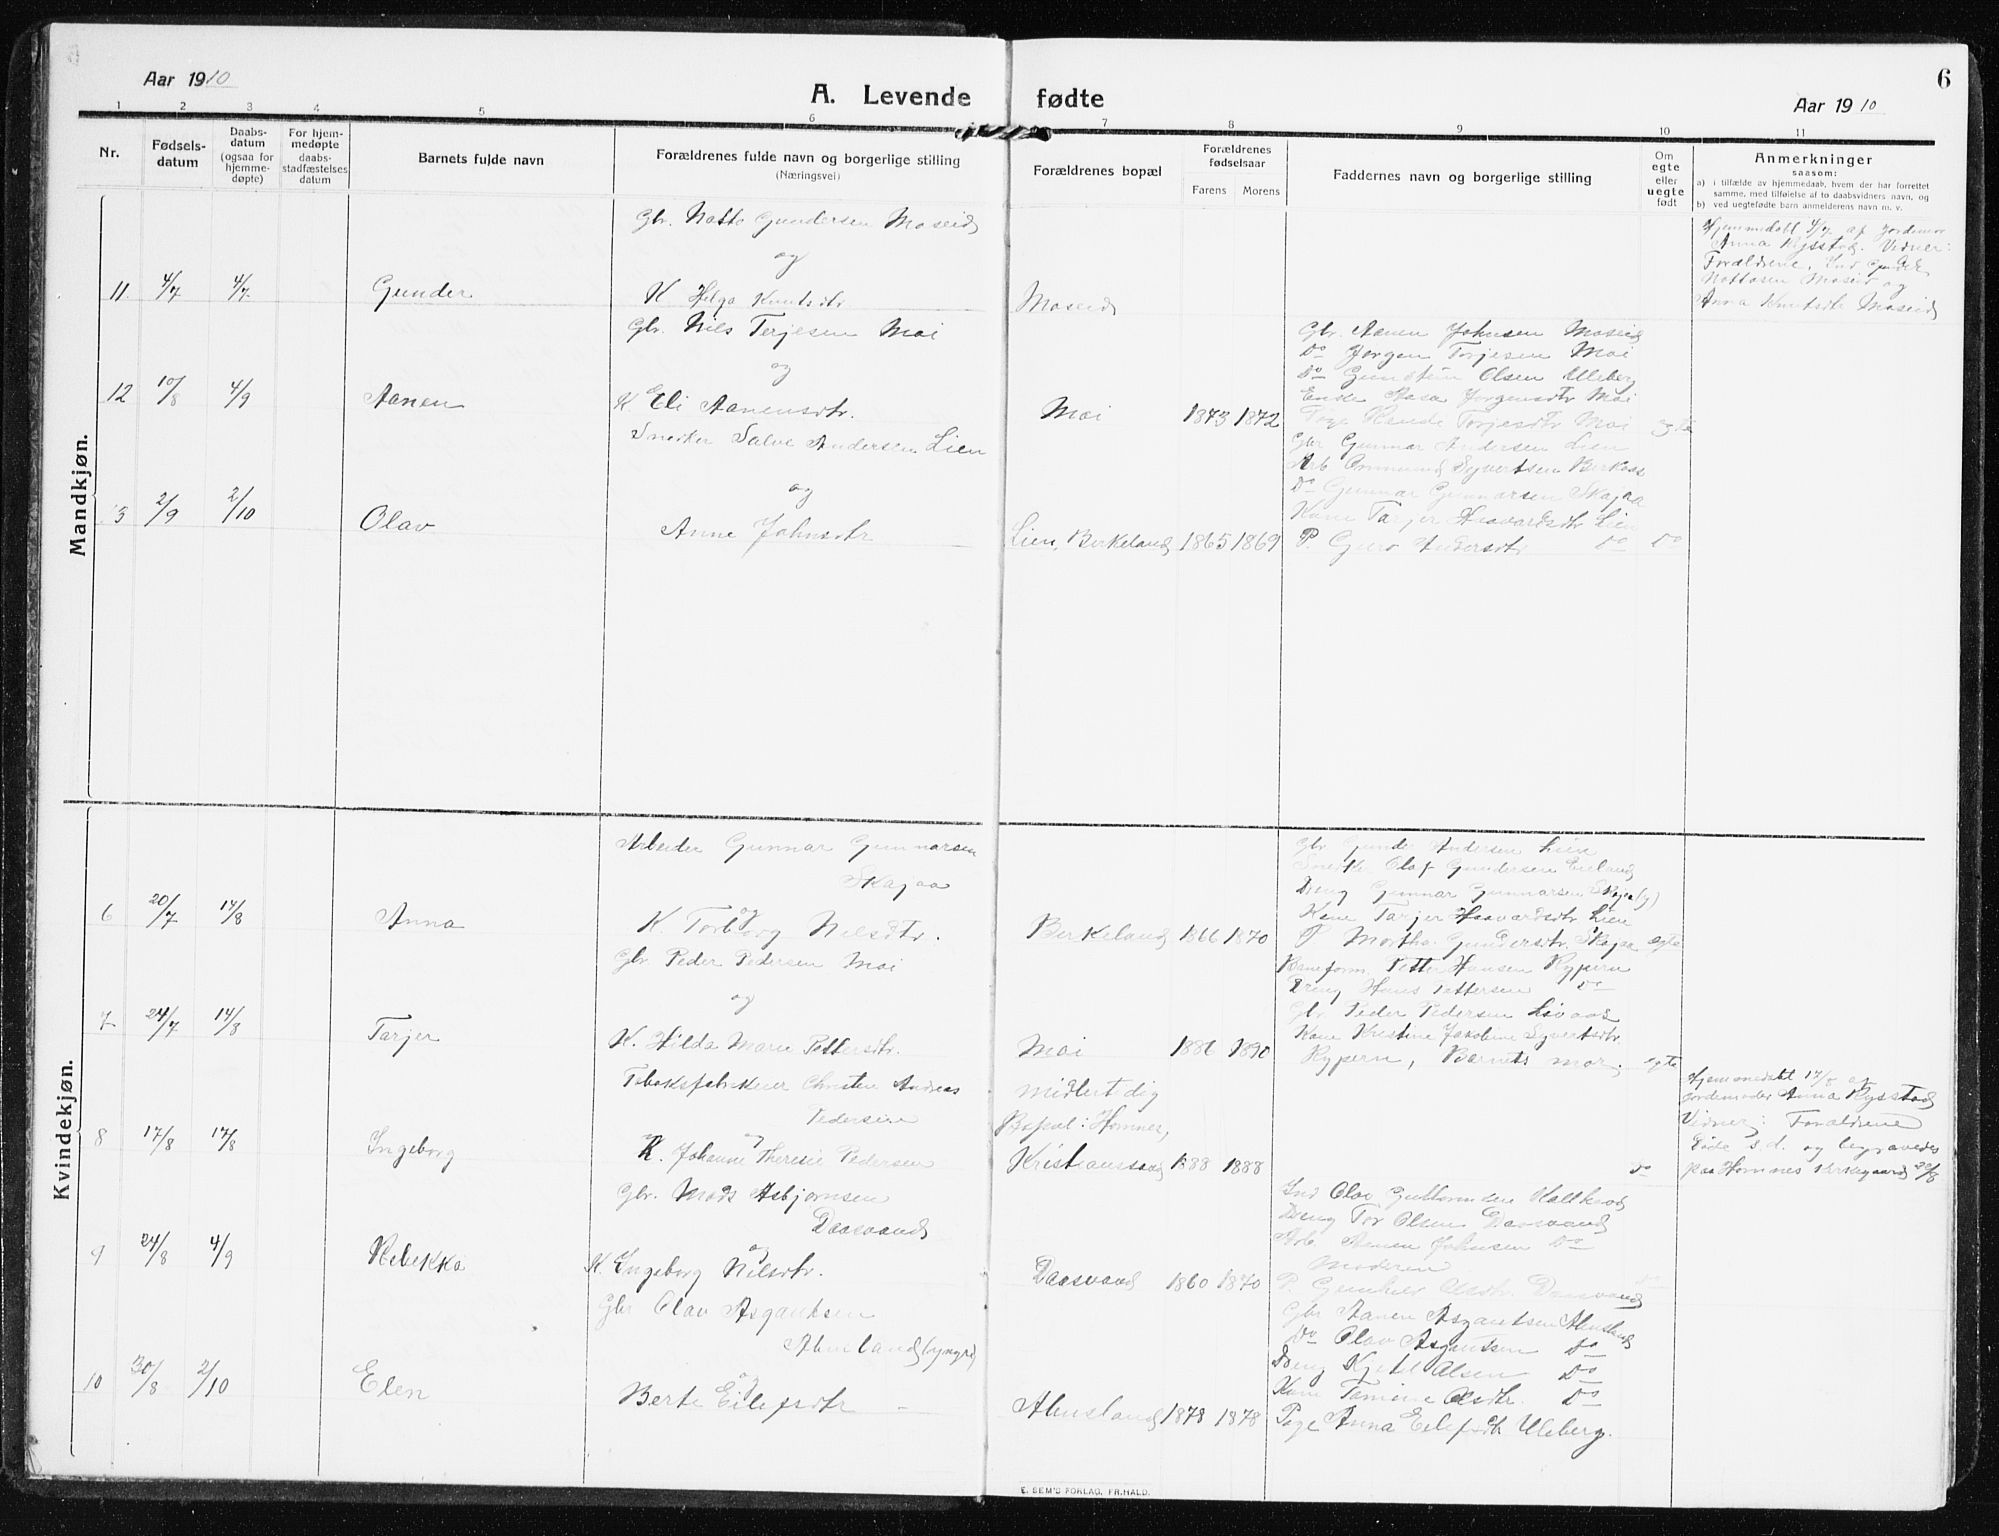 Aar 1910
A. Levende fødte
6
Aar 1910
1 2 3 4 5 6 7 8 9 10 11
Nr.
Fødsels-
datum
Daabs-
datum
(ogsaa for
hjemme-
døpte)
For hjem-
medøpte
daabs-
stadfæstelses
datum
Barnets fulde navn
Forældrenes fulde navn og borgerlige stilling
(Næringsvei)
Forældrenes bopæl
Forældrenes
fødselsaar
Farens Morens
Faddernes navn og borgerlige stilling
Om
egte
eller
uegte
født
Anmerkninger
saasom:
a) i tilfælde av hjemmedaab, hvem der har forrettet
samme, med tilføielse af to daabsvidners navn, og
b) ved uegtefødte barn anmelderens navn m. v.
Mandkjøn.
11. 4/7 4/7. Gunder
Gbr. Notto Gundersen Moseid
og
K Helga Knutsdtr.
Moseid
Hjemmedøbt 4/7. af Jordemor
Anna Rysstad. Vidner:
Forældrene,
Nottosen Moseid og
Anna Knutsdtr Moseid
12 10/8 4/9 Aanen
Gbr. Nils Terjesen Moi
og
K. Eli Aanensdtr.
Moi 1873 1872
Gbr. Aanen Johnsen Moseid
Do Jørgen Torjesen Moi
Do Gunstein Olsen Uleberg
Enke Aasa Jørgensdtr Moi
Torjesdtr Moi egte
13 2/9 2/10 Olav
Snerker Salve Andersen Lien
og
Anne Johnsdtr
Lien, Berkeland 1865 1869
Gbr Gunnar Andersen Lien
Arb Ommund Syvertsen Berkaas
Do Gunnar Gunnarsen Skajaa
Kone Tarjer Haavardsdtr Lien
P. Guro Andersdtr Do Do
Kvindekjøn.
6 20/7 14/8 Anna
Arbeider Gunnar Gunnarsen
Skajaa
og
K. Torborg Nilsdtr.
Berkeland 1866 1870
Gbr Gunde Andersen Lien
Snerker Olaf Gundersen Eieland
Dreng Gunnar Gunnarsen Skajaa (y)
Kone Tarjer Haavardsdtr Lien
P Martha Gundersdtr. Skajaa egte
7 24/7 14/8 Tarjer
Gbr. Peder Pedersen Moi
og
K. Hilda Marie Pettersdtr.
Moi 1886 1890
Baneform. Petter Hansen Rypern
Dreng Hans Pettersen Do
Gbr Peder Pedersen Livaas
Kone Kristine Jakobine Syvertsdtr.
Rypern, Barnets mor, egte
8 17/8 17/8 Ingeborg
Tobaksfabrikeier Christen Andreas
Pedersen
og
K. Johanne Therese Pedersen
midlertidig
Bopæl: Homnes,
Kristianssand 1888 1888
do
Hjemmedøbt 17/8 af
jordemoder Anna Rysstad
Vidner: Forældrene
Døde s.d. og begravedes
paa Homnes kirkegaard 20/8
9 24/8 4/9 Rebekka
Gbr. Mads Asbjørnsen
Daasvand
og
K. Ingeborg Nilsdtr.
Daasvand 1860 1870
Ind Olav Guttormsen
Dreng Tor Olsen Daasvand
Arb. Aanen Johnsen Do
Moderen
P. Olsdtr. Daasvand do
10 30/8 2/10 Elen
Gbr Olav Asgautsen
Abusland (yngre)
og
Berte Eilefsdtr
Abusland 1878 1878
Gbr Aanen Asgautsen Abusland
Do Olav Asgautsen Do
Dreng Kjetil Olsen Do
Kone Tomine Olsdtr. Do
Pige Anna Eilefsdtr Uleberg.
E. SEM'S FORLAG, FR.HALD.